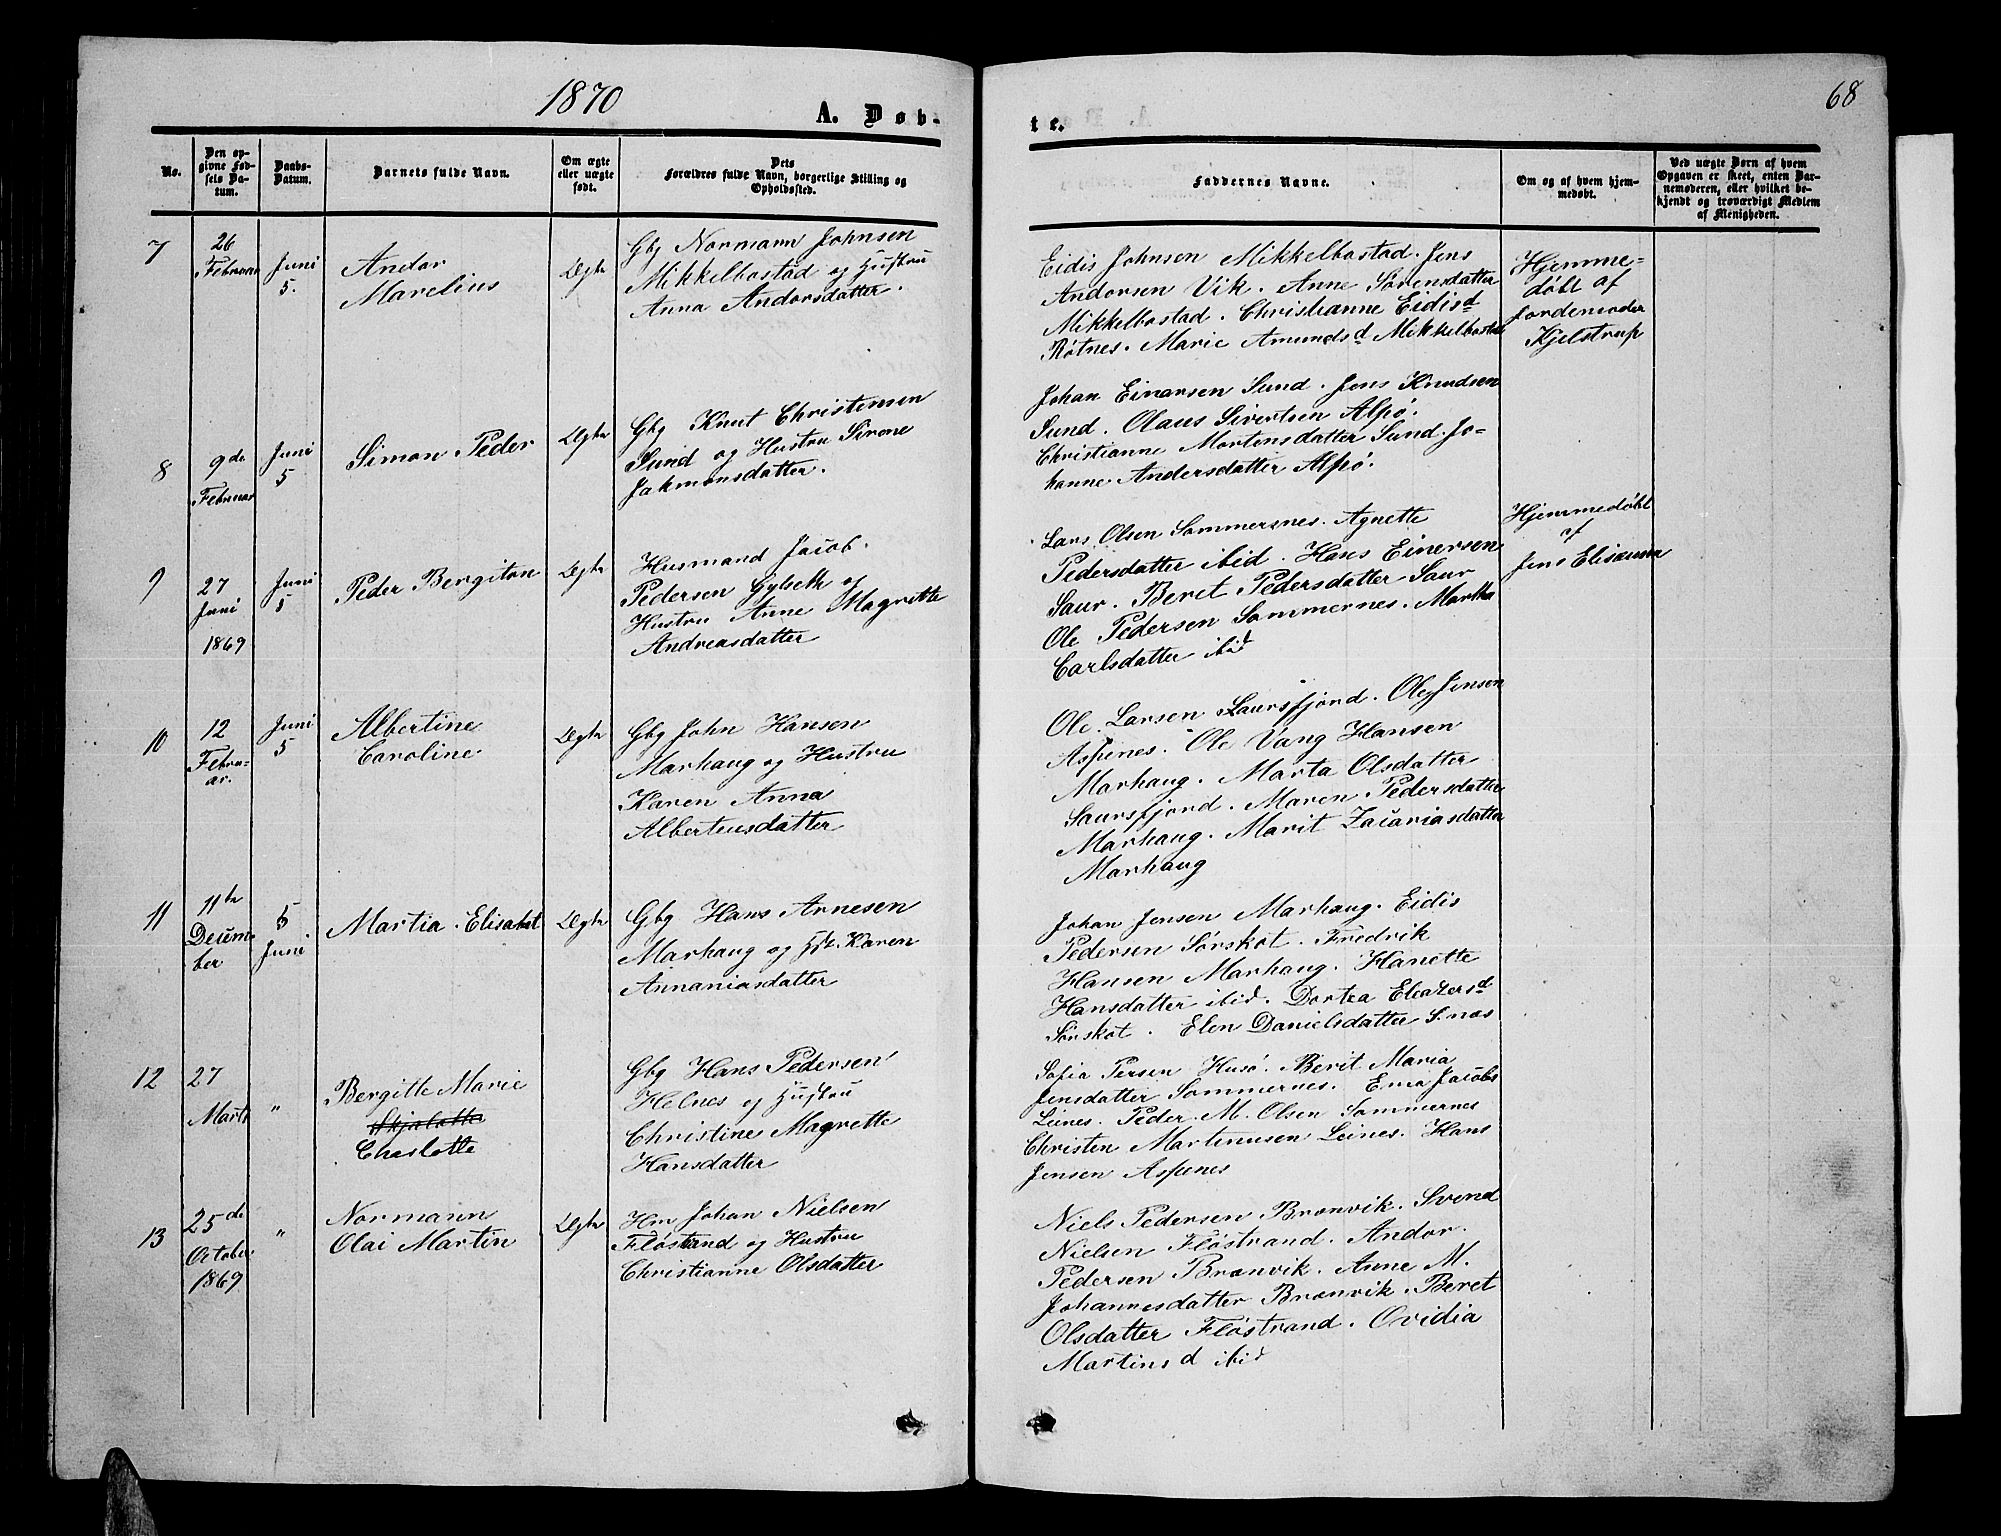 1870
A. Døb-
No.
Den op-
givne Fød-
sels Da-
tum.
Daabs-
Datum.
Barnets fulde Navn.
Om ægte
eller uægte
født.
Dets
Forældres fulde Navn, borgerlige Stilling og
Opholdssted.
7
26
Februar
Juni
5.
Andor
Marelius
Ægte
Gbg Normann Johnsen
Mikkelbostad og Hustru
Anna Andorsdatter.
8
9de
Februar
Juni
5
Simon Peder
Ægte
Gbg Knut Christensen
Sund og Hustru Sirone
Jakmonsdatter.
9
27
Juni
1869
Juni
5
Peder Bergiton
Ægte
Husmand Jacob
Pedersen Gylseth og
Hustru Anne Magrette
Andreasdatter
10
12
Febru-
ar.
Juni
5
Albertine
Caroline
Ægte
Gbg John Hansen
Marhaug og Hustru
Karen Anna
Albertensdatter
11
11te
Decem-
ber
5
Juni
Martia Elisabet
Ægte
Gbg Hans Arnesen
Marhaug og Karen
Annaniasdatter
12
27
Marts
"
Bergitte Marie
Skjalotte
Charlotte
Gbg Hans Pedersen
Helnes og Hustru
Christine Magrette
Hansdatter
13
25de
October
1869
"
Normann
Olai Martin
Ægte
Hm Johan Nielsen
Fløstrand og Hustru
Christianne Olsdatter
68
te.
Faddernes Navne.
Om og af hvem hjem-
medøbt.
Ved uægte Børn af hvem
Opgaven er skeet, enten Bar-
nemoderen, eller hvilket be-
kjendt og troværdigt Medlem
af Menigheden.
Eidis Johnsen Mikkelbostad. Jens
Andorsen Vik. Anne Sørensdatter
Mikkelbostad. Christianne Eidisd
Røtnes. Marie Amundsd Mikkelbostad
Hjemme-
døbt af
Jordemoder
Kjelstrup
Johan Einarsen Sund. Jens Knudsen
Sund. Olaus Sivertsen Alpø.
Christianne Mortensdatter Sund. Jo-
hanne Andersdatter Alpø.
Lars Olsen Sommersnes. Agnette
Pedersdatter ibid. Hans Einersen
Saur. Beret Pedersdatter Saur
Ole Pedersen Sommernes. Martha
Carlsdatter ibid
Hjemmedøbt
af
Jens Eliseusen
Ole Larsen Saursfjord. Ole Jensen
Aspenes. Ole Vang Hansen
Marhaug. Marta Olsdatter
Saursfjord. Maren Pedersdatter
Marhaug. Marit Zacariasdatter
Marhaug
Johan Jensen Marhaug. Eidis
Pedersen Sørskot. Fredrik
Hansen Marhaug. Hanette
Hansdatter ibid. Dortea Eleazersd
Sørskot. Elen Danielsdatter S.næs
Sofia Persen Husø. Berit Maria
Jensdatter Sommernes. Ema Jacobs
Leines. Peder M. Olsen Sommernes
Christen Martenusen Leines. Hans
Jensen Aspenes
Niels Pedersen Brønvik. Svend
Nielsen Fløstrand. Andor
Pedersen Brønvik. Anne M.
Johannesdatter Brønvik. Beret
Olsdatter Fløstrand. Ovidia
Martinsd ibid